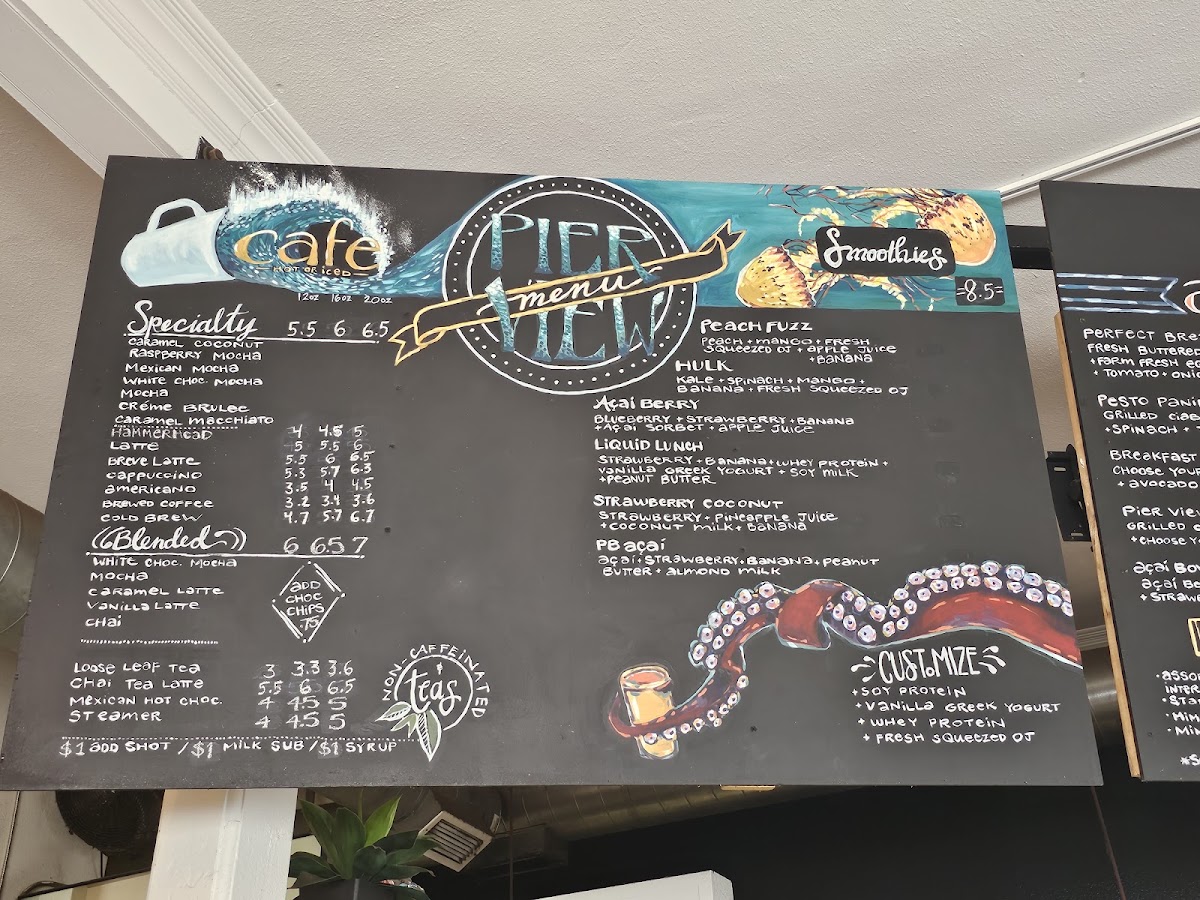 cafe
HOT OR ICED
PIER
VIEW
menu
Smoothies
8.5
12oz 16oz 20oz
Specialty 5.5 6 6.5
CARAMEL COCONUT
RASPBERRY MOCHA
MEXICAN MOCHA
WHITE CHOC. MOCHA
MOCHA
CRÉME BRULEE
CARAMEL MACCHIATO
HAMMERHEAD 4 4.5 5
LATTE 5 5.5 6
BREVE LATTE 5.5 6 6.5
CAPPUCCINO 5.3 5.7 6.3
AMERICANO 3.5 4 4.5
BREWED COFFEE 3.2 3.4 3.6
COLD BREW 4.7 5.7 6.7
Blended 6 6.5 7
WHITE CHOC. MOCHA
MOCHA
CARAMEL LATTE
VANILLA LATTE
CHAI
ADD
CHOC
CHIPS
.75
LOOSE LEAF TEA 3 3.3 3.6
CHAI TEA LATTE 5.5 6 6.5
MEXICAN HOT CHOC. 4 4.5 5
STEAMER 4 4.5 5
NON-CAFFEINATED
& teas
$1 ADD SHOT / $1 MILK SUB / $1 SYRUP
PEACH FUZZ
PEACH + MANGO + FRESH
SQUEEZED OJ + APPLE JUICE
+ BANANA
HULK
KALE + SPINACH + MANGO +
BANANA + FRESH SQUEEZED OJ
AÇAI BERRY
BLUEBERRY + STRAWBERRY + BANANA
+ AÇAI SORBET + APPLE JUICE
LIQUID LUNCH
STRAWBERRY + BANANA + WHEY PROTEIN +
VANILLA GREEK YOGURT + SOY MILK
+ PEANUT BUTTER
STRAWBERRY COCONUT
STRAWBERRY + PINEAPPLE JUICE
+ COCONUT MILK + BANANA
PB AÇAI
AÇAI + STRAWBERRY + BANANA + PEANUT
BUTTER + ALMOND MILK
CUSTOMIZE
+ SOY PROTEIN
+ VANILLA GREEK YOGURT
+ WHEY PROTEIN
+ FRESH SQUEEZED OJ
PERFECT
FRESH
+ FARM FRESH
+ TOMATO +
PESTO
GRILLED
+ SPINACH +
BREAKFAST
CHOOSE
+ AVOCADO
PIER
GRILLED
+ CHOOSE
AÇAI
AÇAI